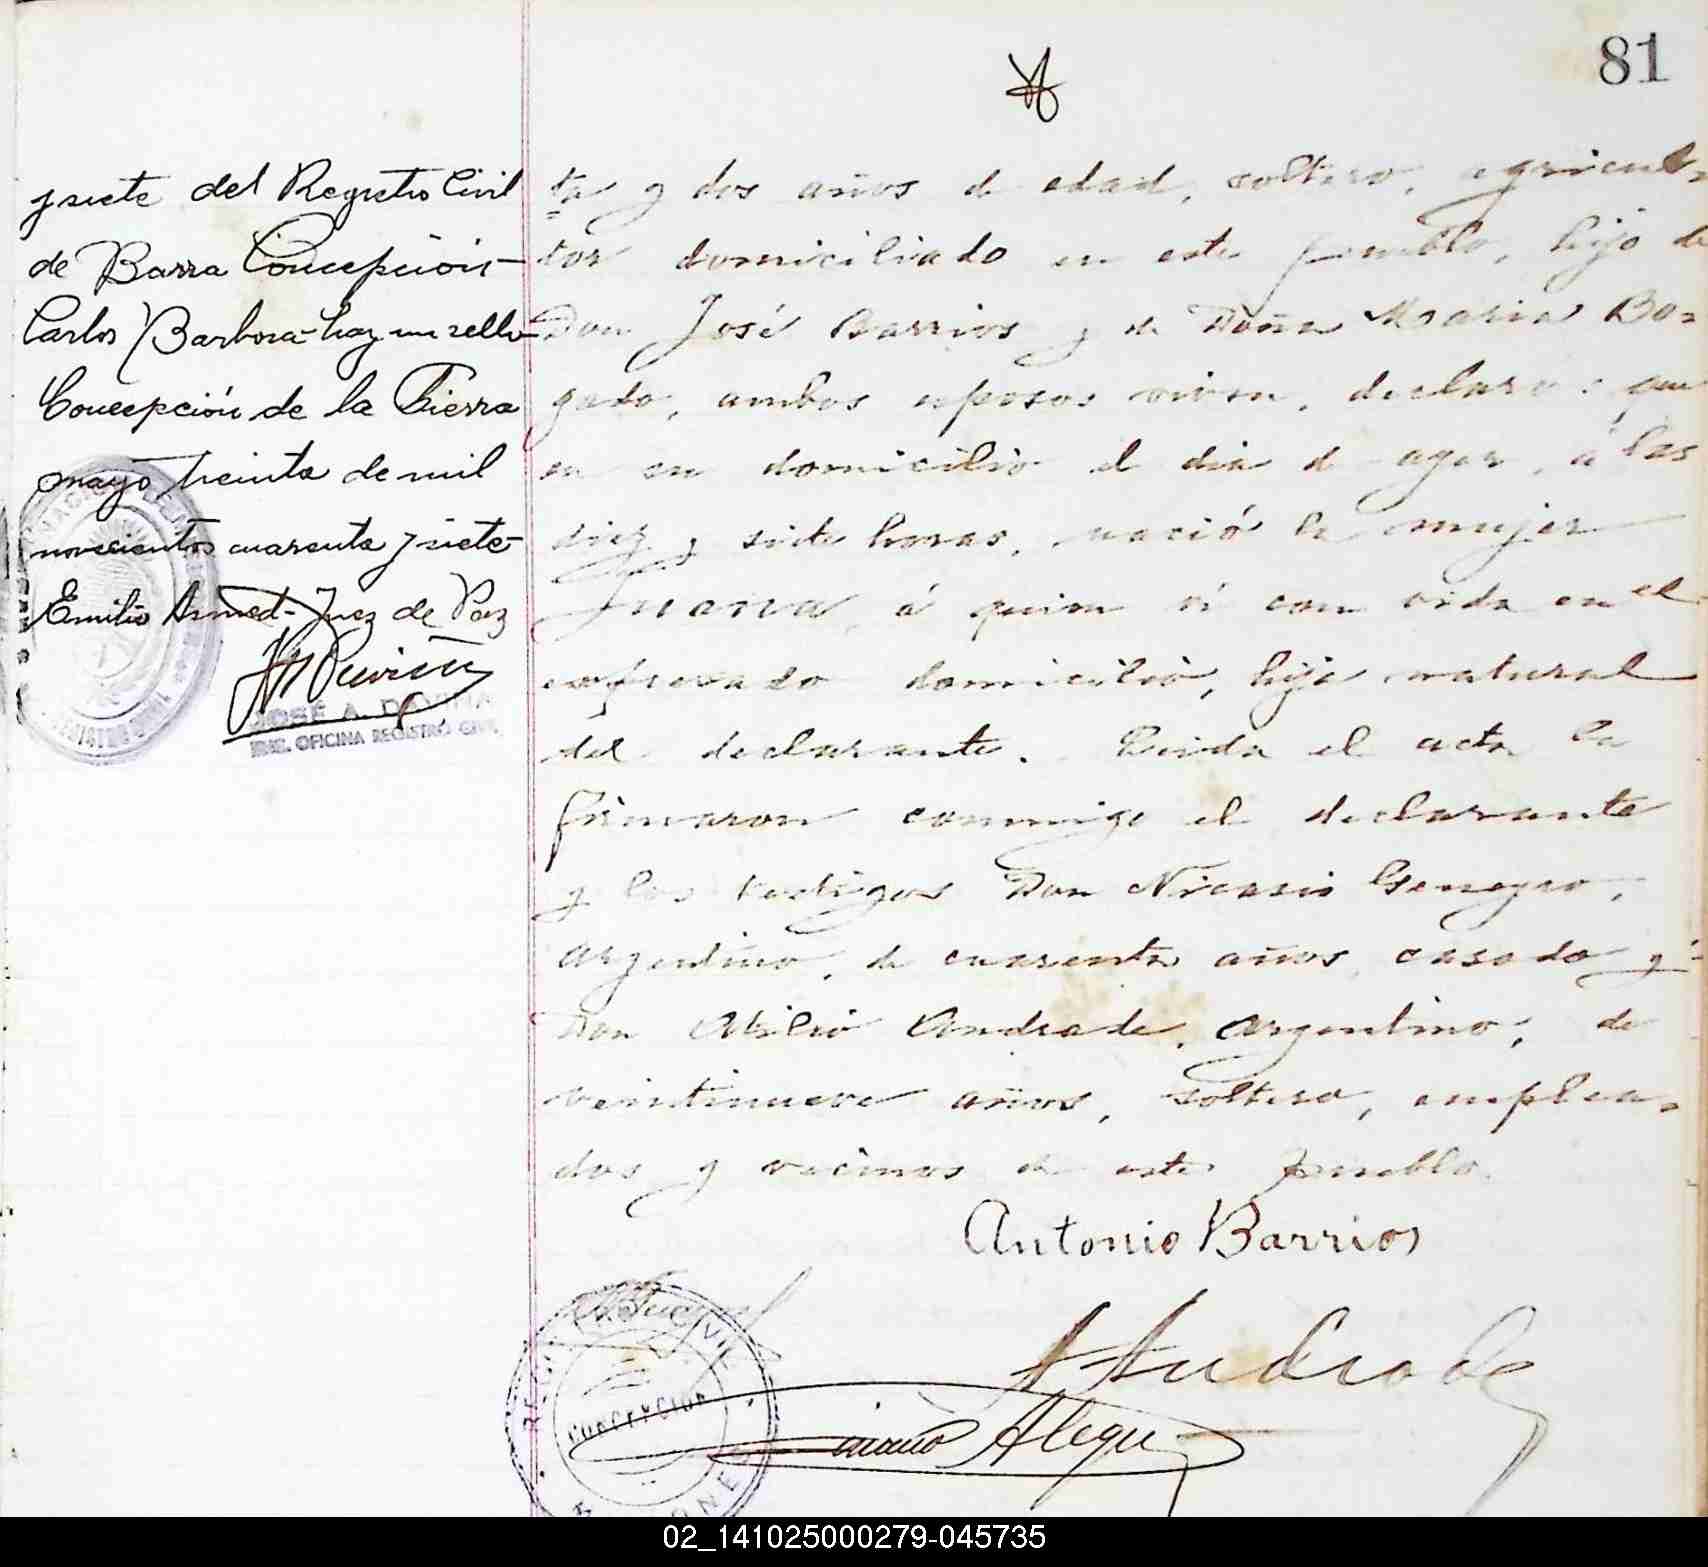 81
y siete del Registro Civil
de Barra Concepción-
Carlos Barbosa-hay un sello-
Concepción de la Sierra
mayo treinta de mil
novecientos cuarenta y siete-
Emilio Juez de Paz
JOSÉ A.
OFICINA REGISTRO CIVIL
ta y dos años de edad, soltero, agricul=
tor domiciliado en este pueblo, hijo de
Don José Barrios y de Doña Maria Bo=
gado, ambos esposos viven, declaró: que
en su domicilio el dia de ayer, á las
diez y siete horas, nació la mujer
Juana, á quien ví con vida en el
expresado domicilio, hija natural
del declarante. Leida el acta la
firmaron conmigo el declarante
y los testigos Don Nicasio
argentino, de cuarenta años, casado y
Don Atilio Andrade, argentino, de
veintinueve años, soltero, emplea=
dos y vecinos de este pueblo.
Antonio Barrios
A Andrade
CONCEPCION
Alegre
02_141025000279-045735